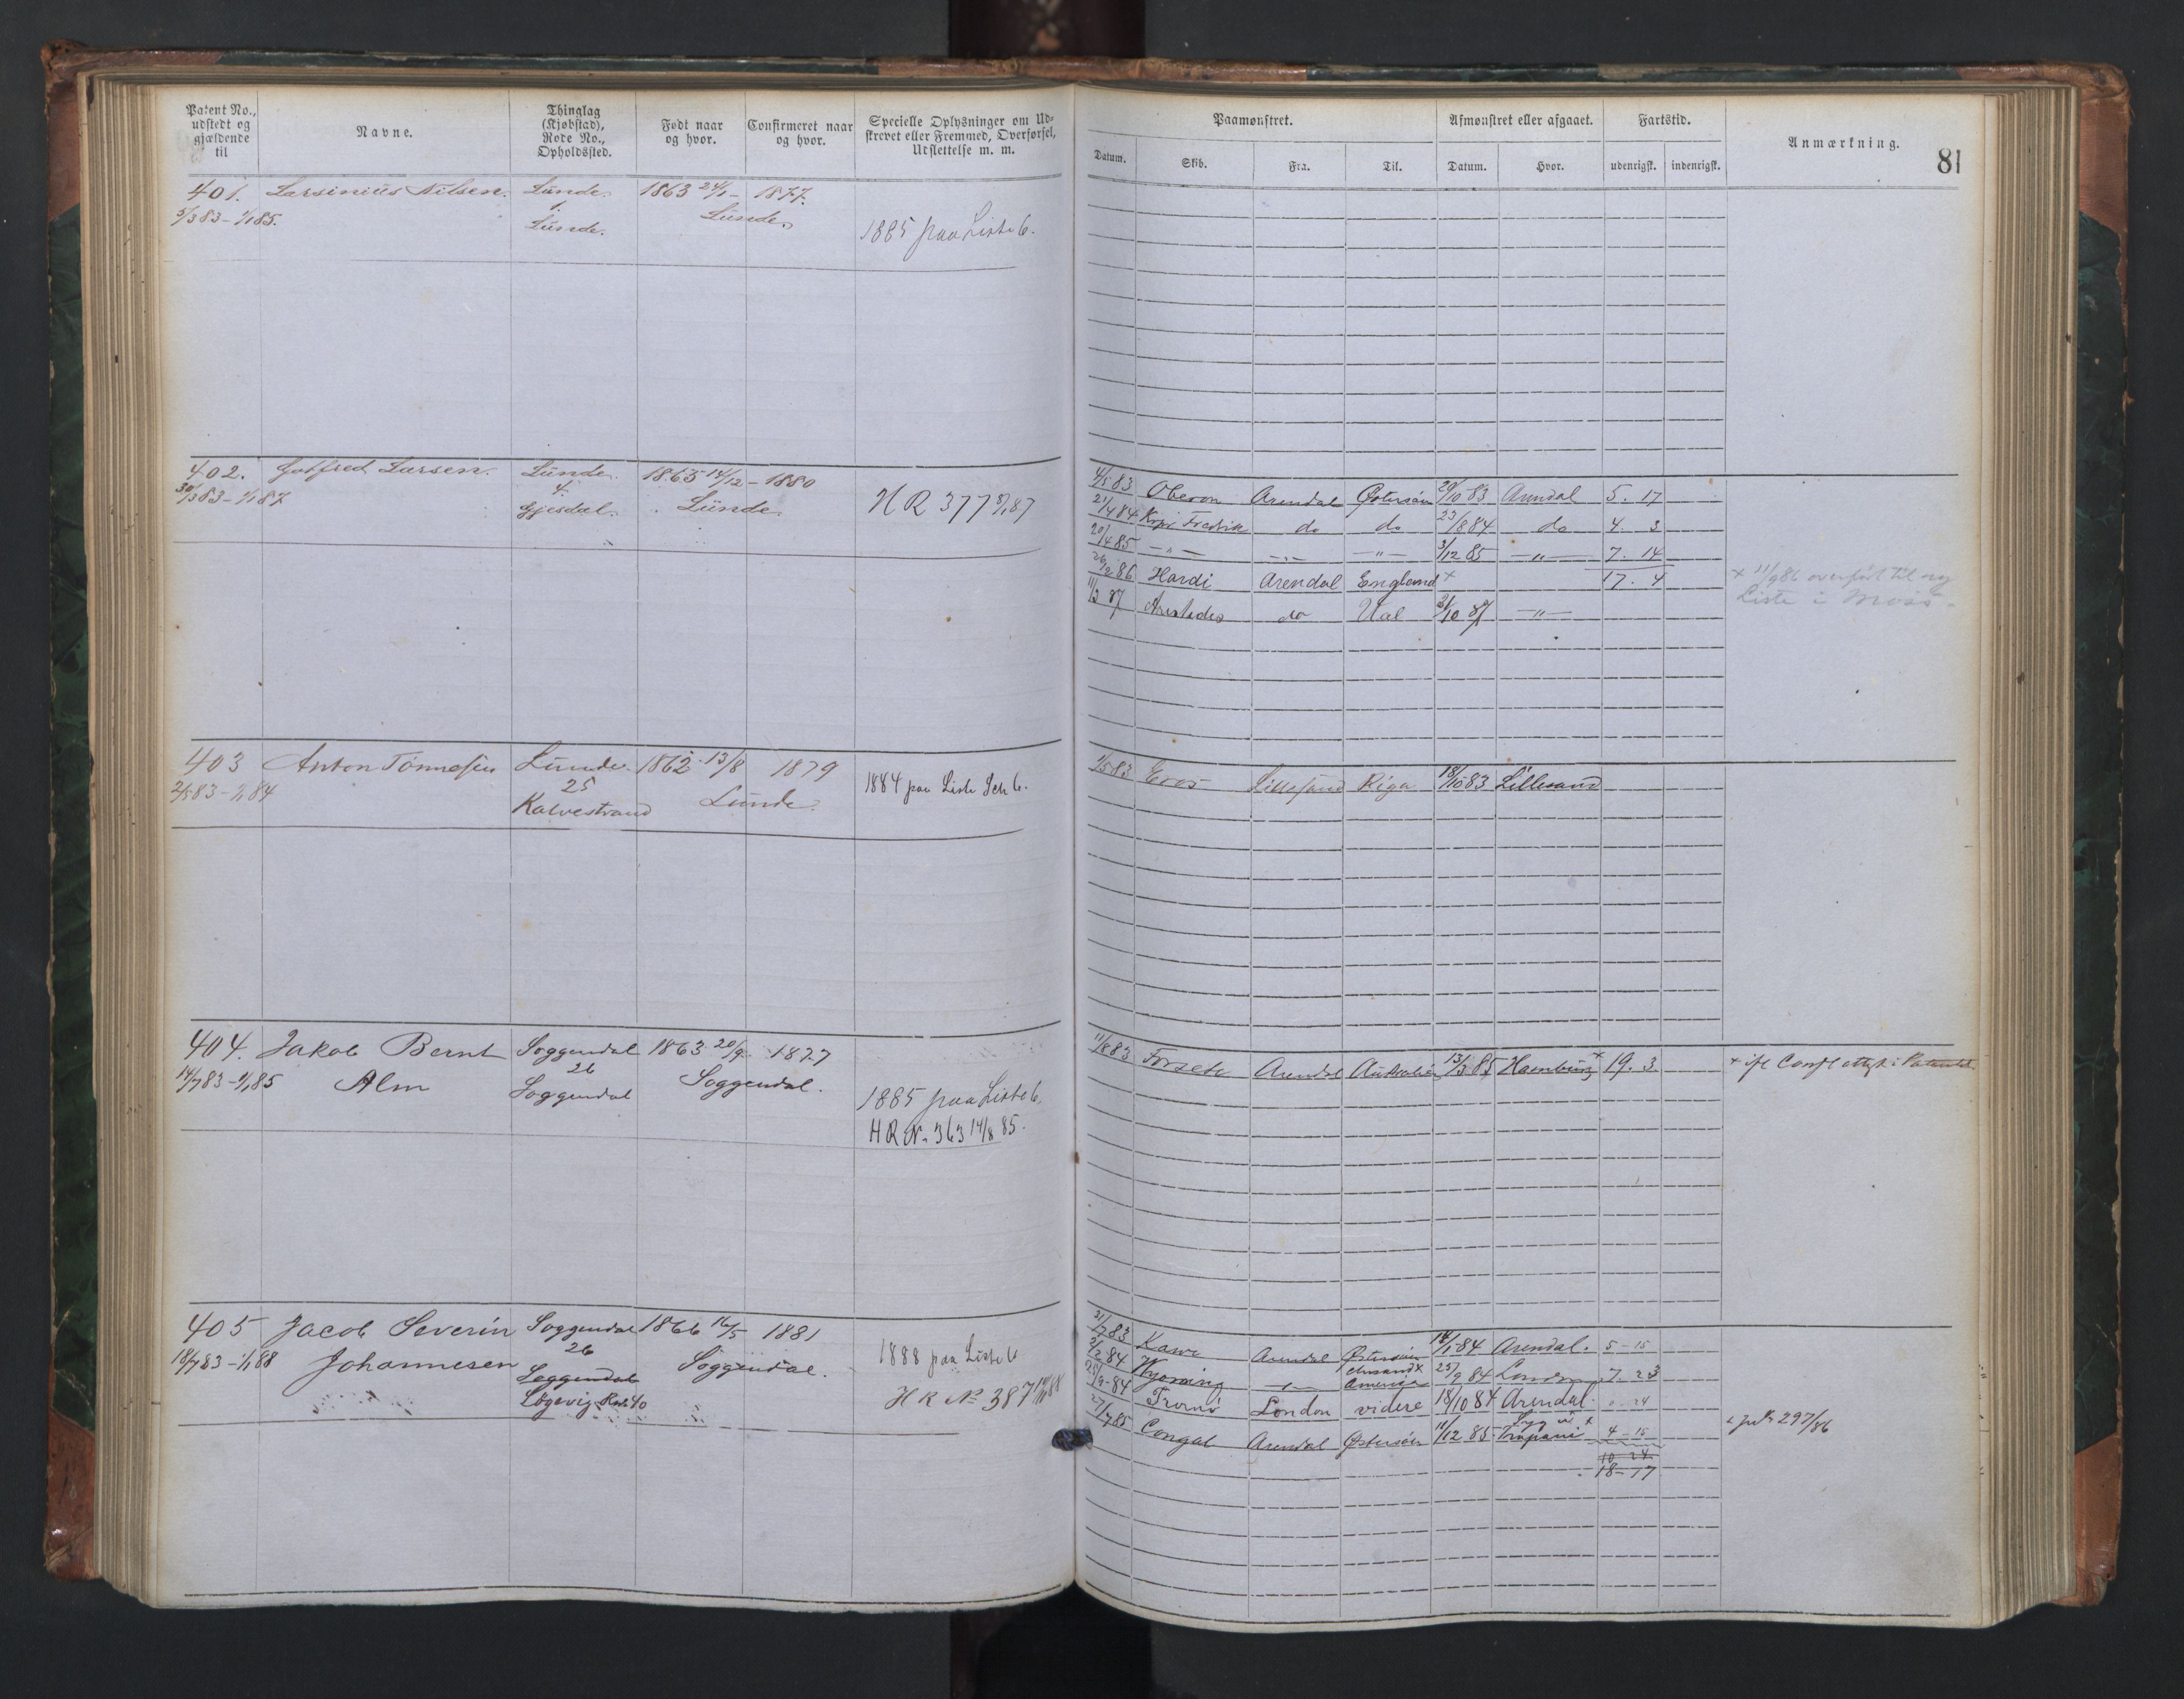 Patent No., udstedt og gjældende til
Navne.
Thinglag (Kjøbstad), Rode No., Opholdssted.
Født naar og hvor.
Confirmeret naar og hvor.
Specielle Oplysninger om Udskrevet eller Fremmed, Overførsel, Udslettelse m. m.
Paamønstret.
Afmønstret eller afgaaet.
Fartstid.
Anmærkning.
81
Datum. Skib. Fra. Til. Datum. Hvor. udenrigsk. indenrigsk.
401. Larsinius Nilsen. Lunde. 1863 24/1 - 1877.
5/3 83 - 1/1 85. 1. Lunde.
Lunde.
1885 paa Liste 6.
402. Gotfred Larsen. Lunde. 1865 14/12 - 1880
30/3 83 - 1/1 87 4. Lunde.
Gjesdal.
H R 377 87
4/5 83 Oberon Arendal Østersøen 20/10 83 Arendal 5. 17
21/4 84 Fredrik do do 23/8 84 do 4. 3
20/4 85 - " - - " - - " - 3/12 85 - " - 7. 14
26/2 86 Hardi Arendal England x 17. 4
x 11/9 86 overført til ny
Liste i Moss.
11/3 87 Aristides do Ual 31/10 87 - " -
403 Anton Tønnesen Lunde. 1862 13/8 1879
2/5 83 - 1/1 84 25 Lunde.
Kalvestrand
1884 paa Liste Sch 6.
1/5 83 Eros Lillesand Riga 18/10 83 Lillesand
404. Jakob Bernt Soggendal 1863 20/9 - 1877
14/7 83 - 1/1 85 Alm 26 Soggendal.
Soggendal
1885 paa Liste 6.
H R N. 363 14/8 85.
11/8 83 Forsete Arendal Australien 13/3 85 Hamburg x 19. 3
405 Jacob Severin Soggendal 1866 16/5 1881
18/7 83 - 1/1 88 Johannesen 26 Soggendal.
Soggendal
Løgevig 40
1888 paa Liste 6
H R No 387 88
31/7 83 Kawe Arendal Østersøen 14/1 84 Arendal. 5 - 15
2/2 84 Wyoming - " - America 25/9 84 London 7. 23
25/9 - 84 Tromø London videre 18/10 84 Arendal. - 24
27/7 85 Congal Arendal Østersøen 11/12 85 Trapani 4 - 15
297/86
10 24
18 - 17